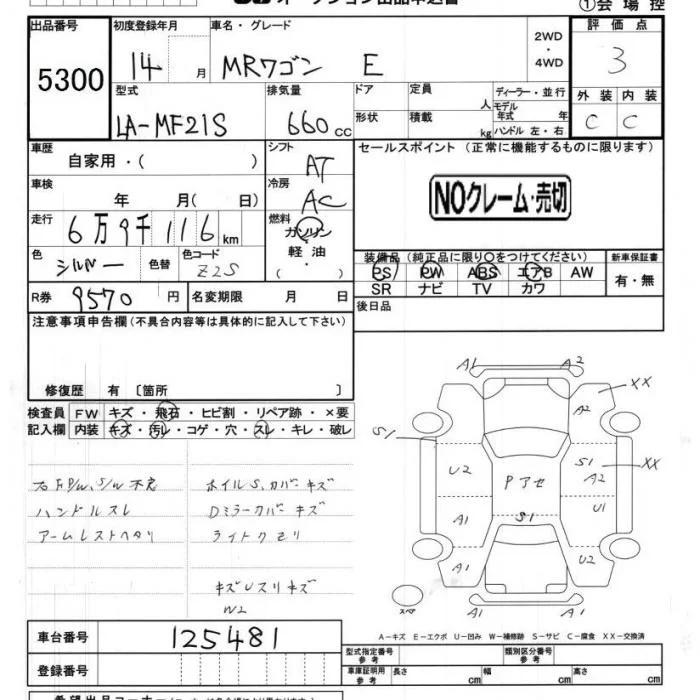 オークション出品申込書
①会場控
出品番号 5300
初度登録年月 14 月
車名・グレード MRワゴン E
2WD・4WD
評価点 3
外装 C 内装 C
型式 LA-MF21S
排気量 660 cc
ドア 形状
定員 人
積載 kg
ディーラー・並行
モデル年式 年
ハンドル 左・右
車歴 自家用・( )
シフト AT
セールスポイント (正常に機能するものに限ります)
NOクレーム・売切
車検 年 月( 日)
冷房 AC
走行 6万9千116 km
燃料 ガソリン 軽油 ・( )
色 シルバー 色替
色コード Z2S
装備品 (純正品に限り○をつけてください)
PS PW ABS エアB AW
SR ナビ TV カワ
新車保証書 有・無
R券 9570 円
名変期限 月 日
後日品
注意事項申告欄 (不具合内容等は具体的に記入して下さい)
修復歴 有 〔箇所 〕
検査員 FW キズ・飛石・ヒビ割・リペア跡・×要
記入欄 内装 キズ・汚レ・コゲ・穴・スレ・キレ・破レ
P/W, S/W 不良
ハンドルスレ
アームレストヘタリ
ホイルS、カバーキズ
Dミラーカバーキズ
ライトクモリ
キズUスリキズ
W2
A1 A2
XX
A2
S1
U2
Pアセ
S1
A2
XX
A1
S1
U1
A1
U2
A1 A1
スペ
A-キズ E-エクボ U-凹み W-補修跡 S-サビ C-腐食 XX-交換済
車台番号 125481
登録番号
型式指定番号 参考
類別区分番号 参考
車庫証明用 参考 長さ cm 幅 cm 高さ cm
希望出品コーナー